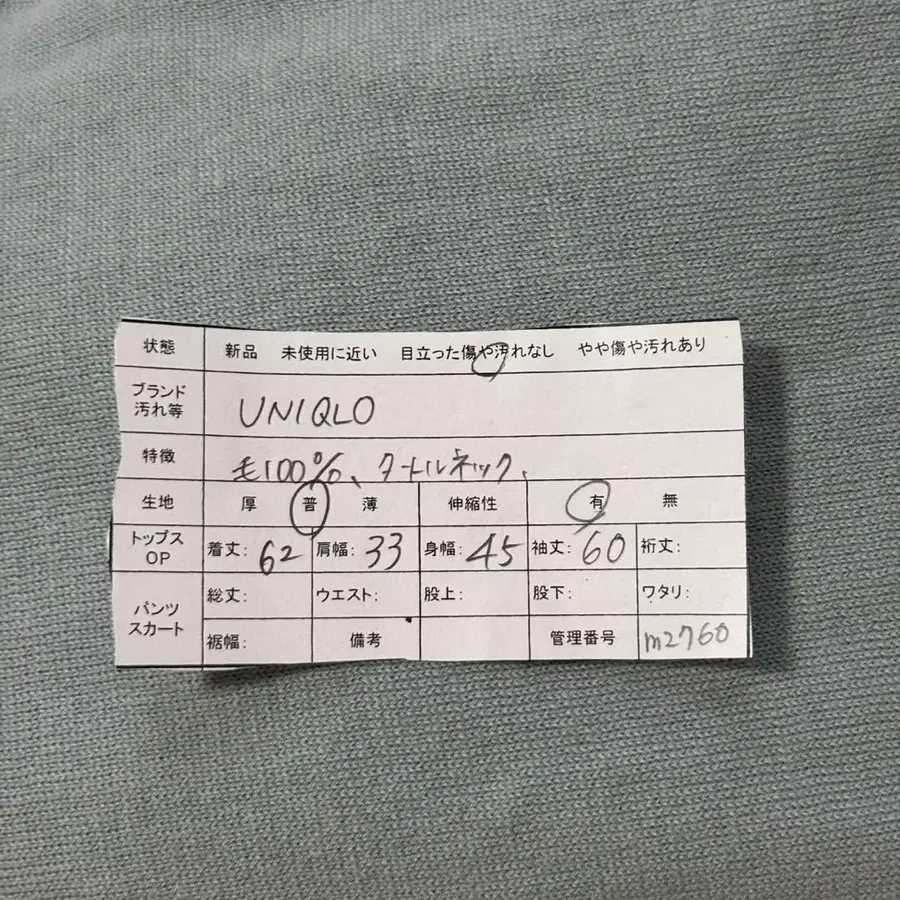 状態 新品 未使用に近い 目立った傷や汚れなし やや傷や汚れあり
ブランド
汚れ等 UNIQLO
特徴 毛100%、タートルネック、
生地 厚 普 薄 伸縮性 有 無
トップス
OP 着丈: 62 肩幅: 33 身幅: 45 袖丈: 60 裄丈:
パンツ
スカート 総丈: ウエスト: 股上: 股下: ワタリ:
裾幅: 備考 管理番号 m2760